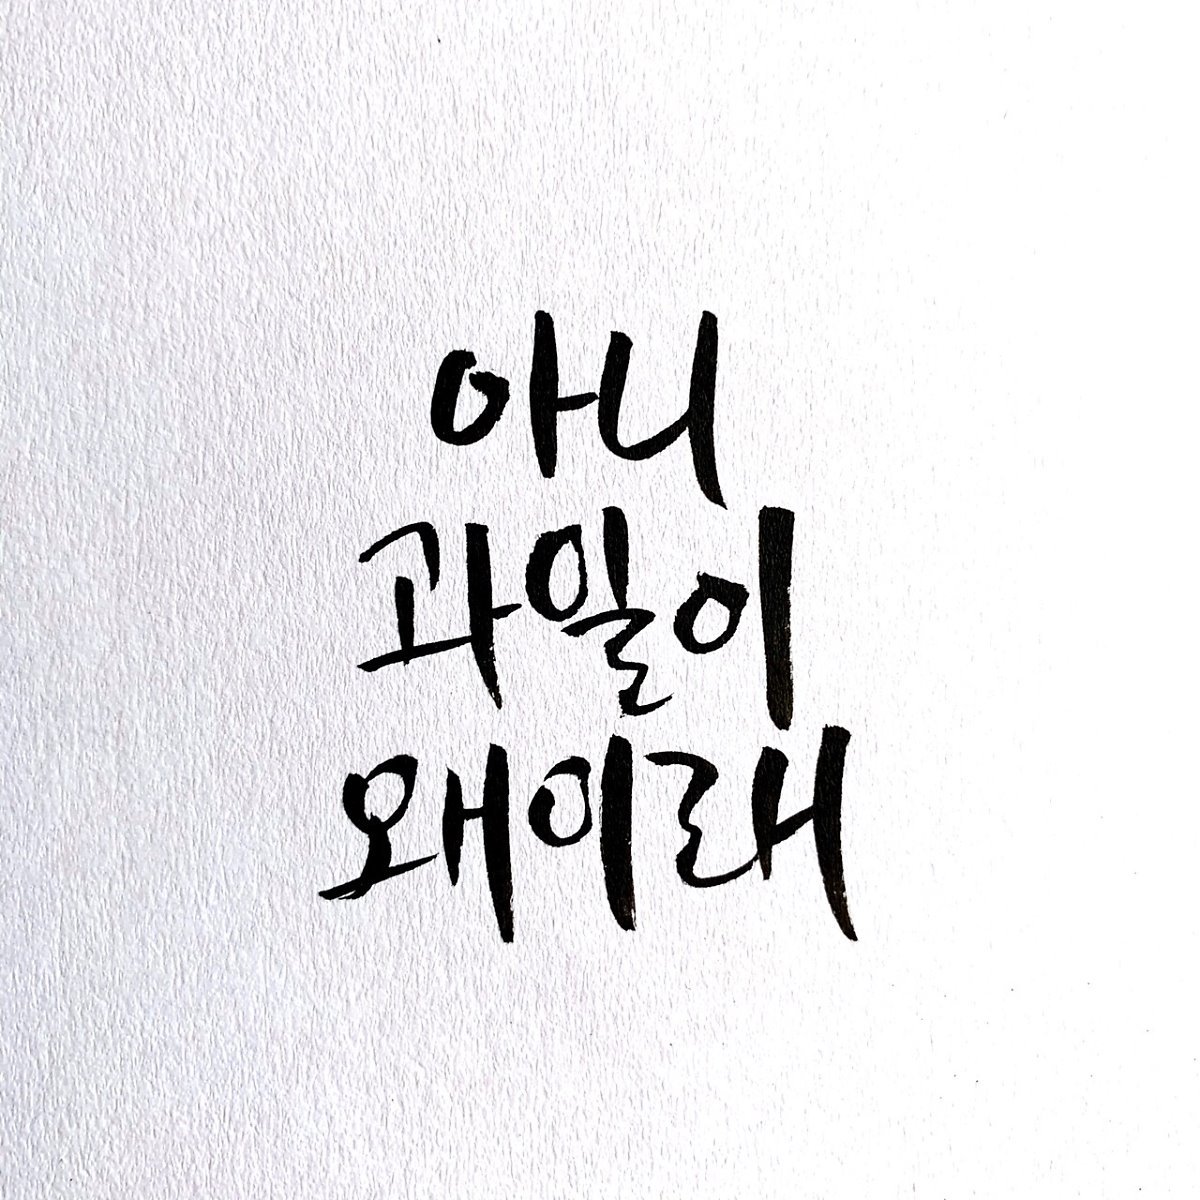 아니
과일이
왜이래